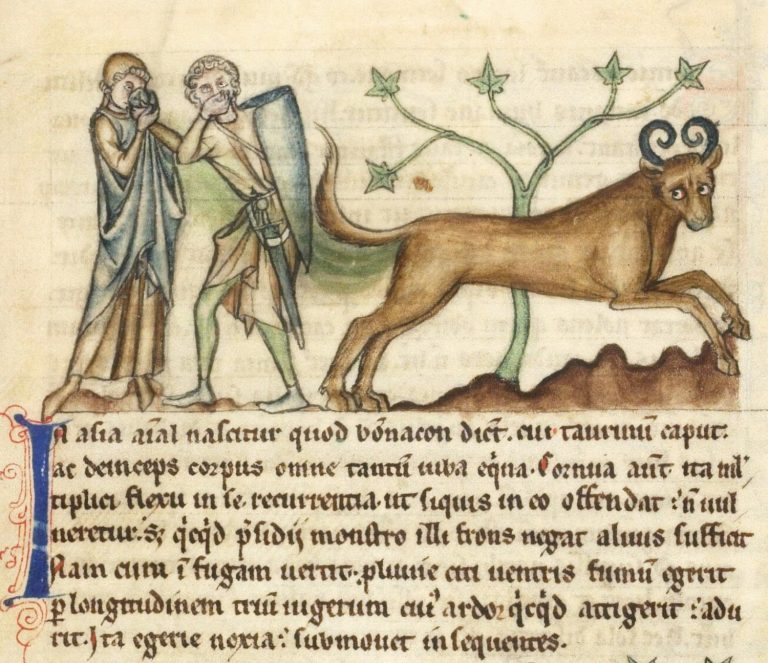 In asia aīal nascitur quod bonacon dicť. cui taurinū caput.
ac deinceps corpus omne tantū iuba eq̄na. Cornua auť ita ml̄
tiplici flexu in se recurrentia. ut siquis in eo offendat: ñ uul
neretur. S; q̇cq̇d p̄sidij monstro illi frons negat aluus sufficit
Nam cum ī fugam uertit. pluuie citi uentris fumū egerit
ꝑ longitudinem triū iugerum cuiꝰ ardor q̇cq̇d attigerit: adu
rit. Ita egerie noxia: submouet insequentes.